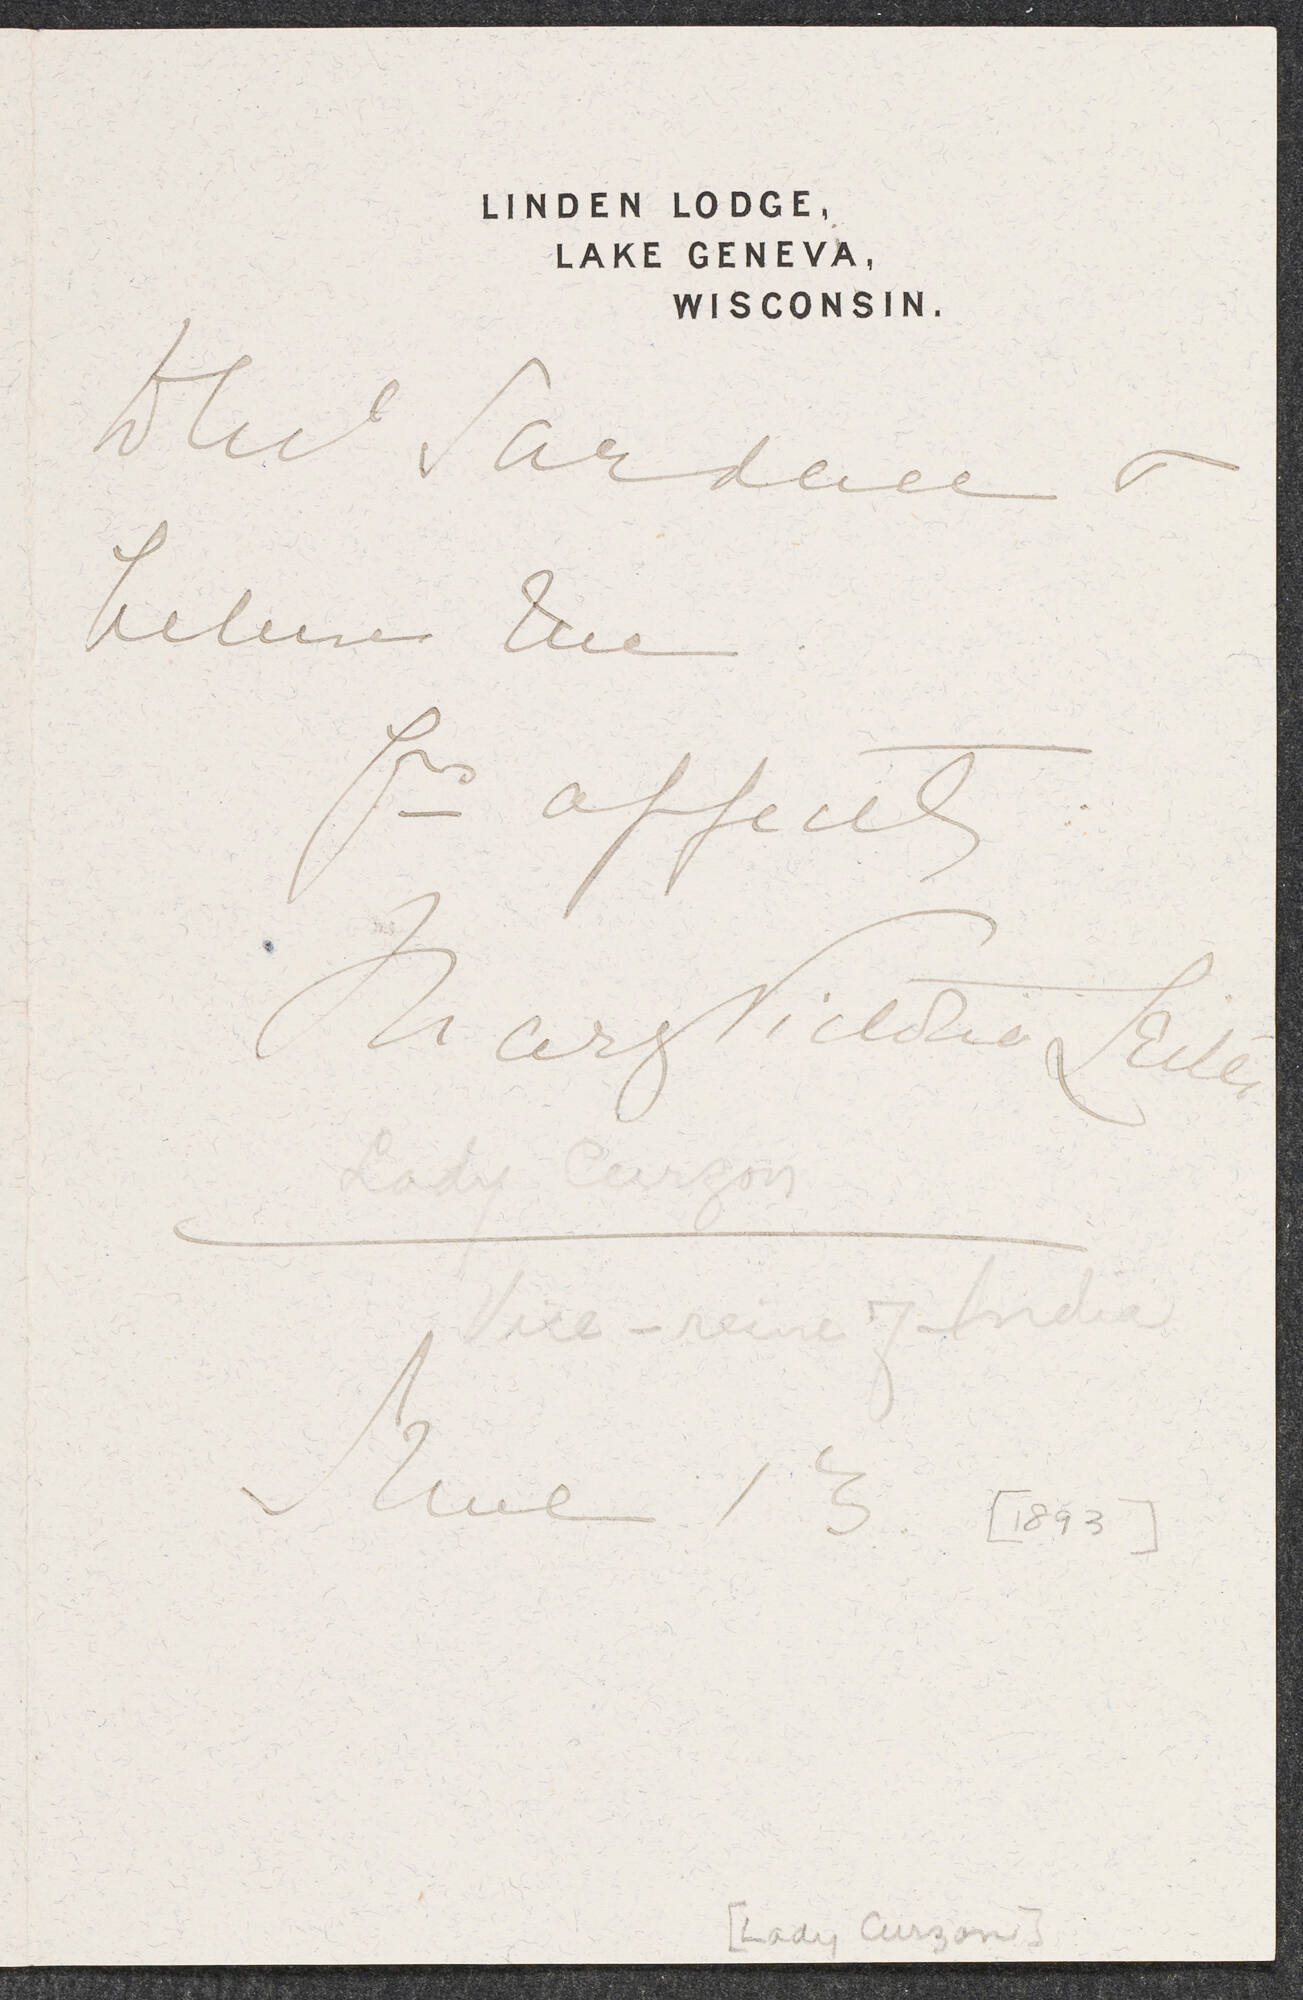 LINDEN LODGE,
LAKE GENEVA,
WISCONSIN.
to Mrs Gardner &
believe me
Yrs affectly
Mary Victoria Leiter
Lady Curzon
Vice-reine of India
June 13 [1893]
[Lady Curzon]